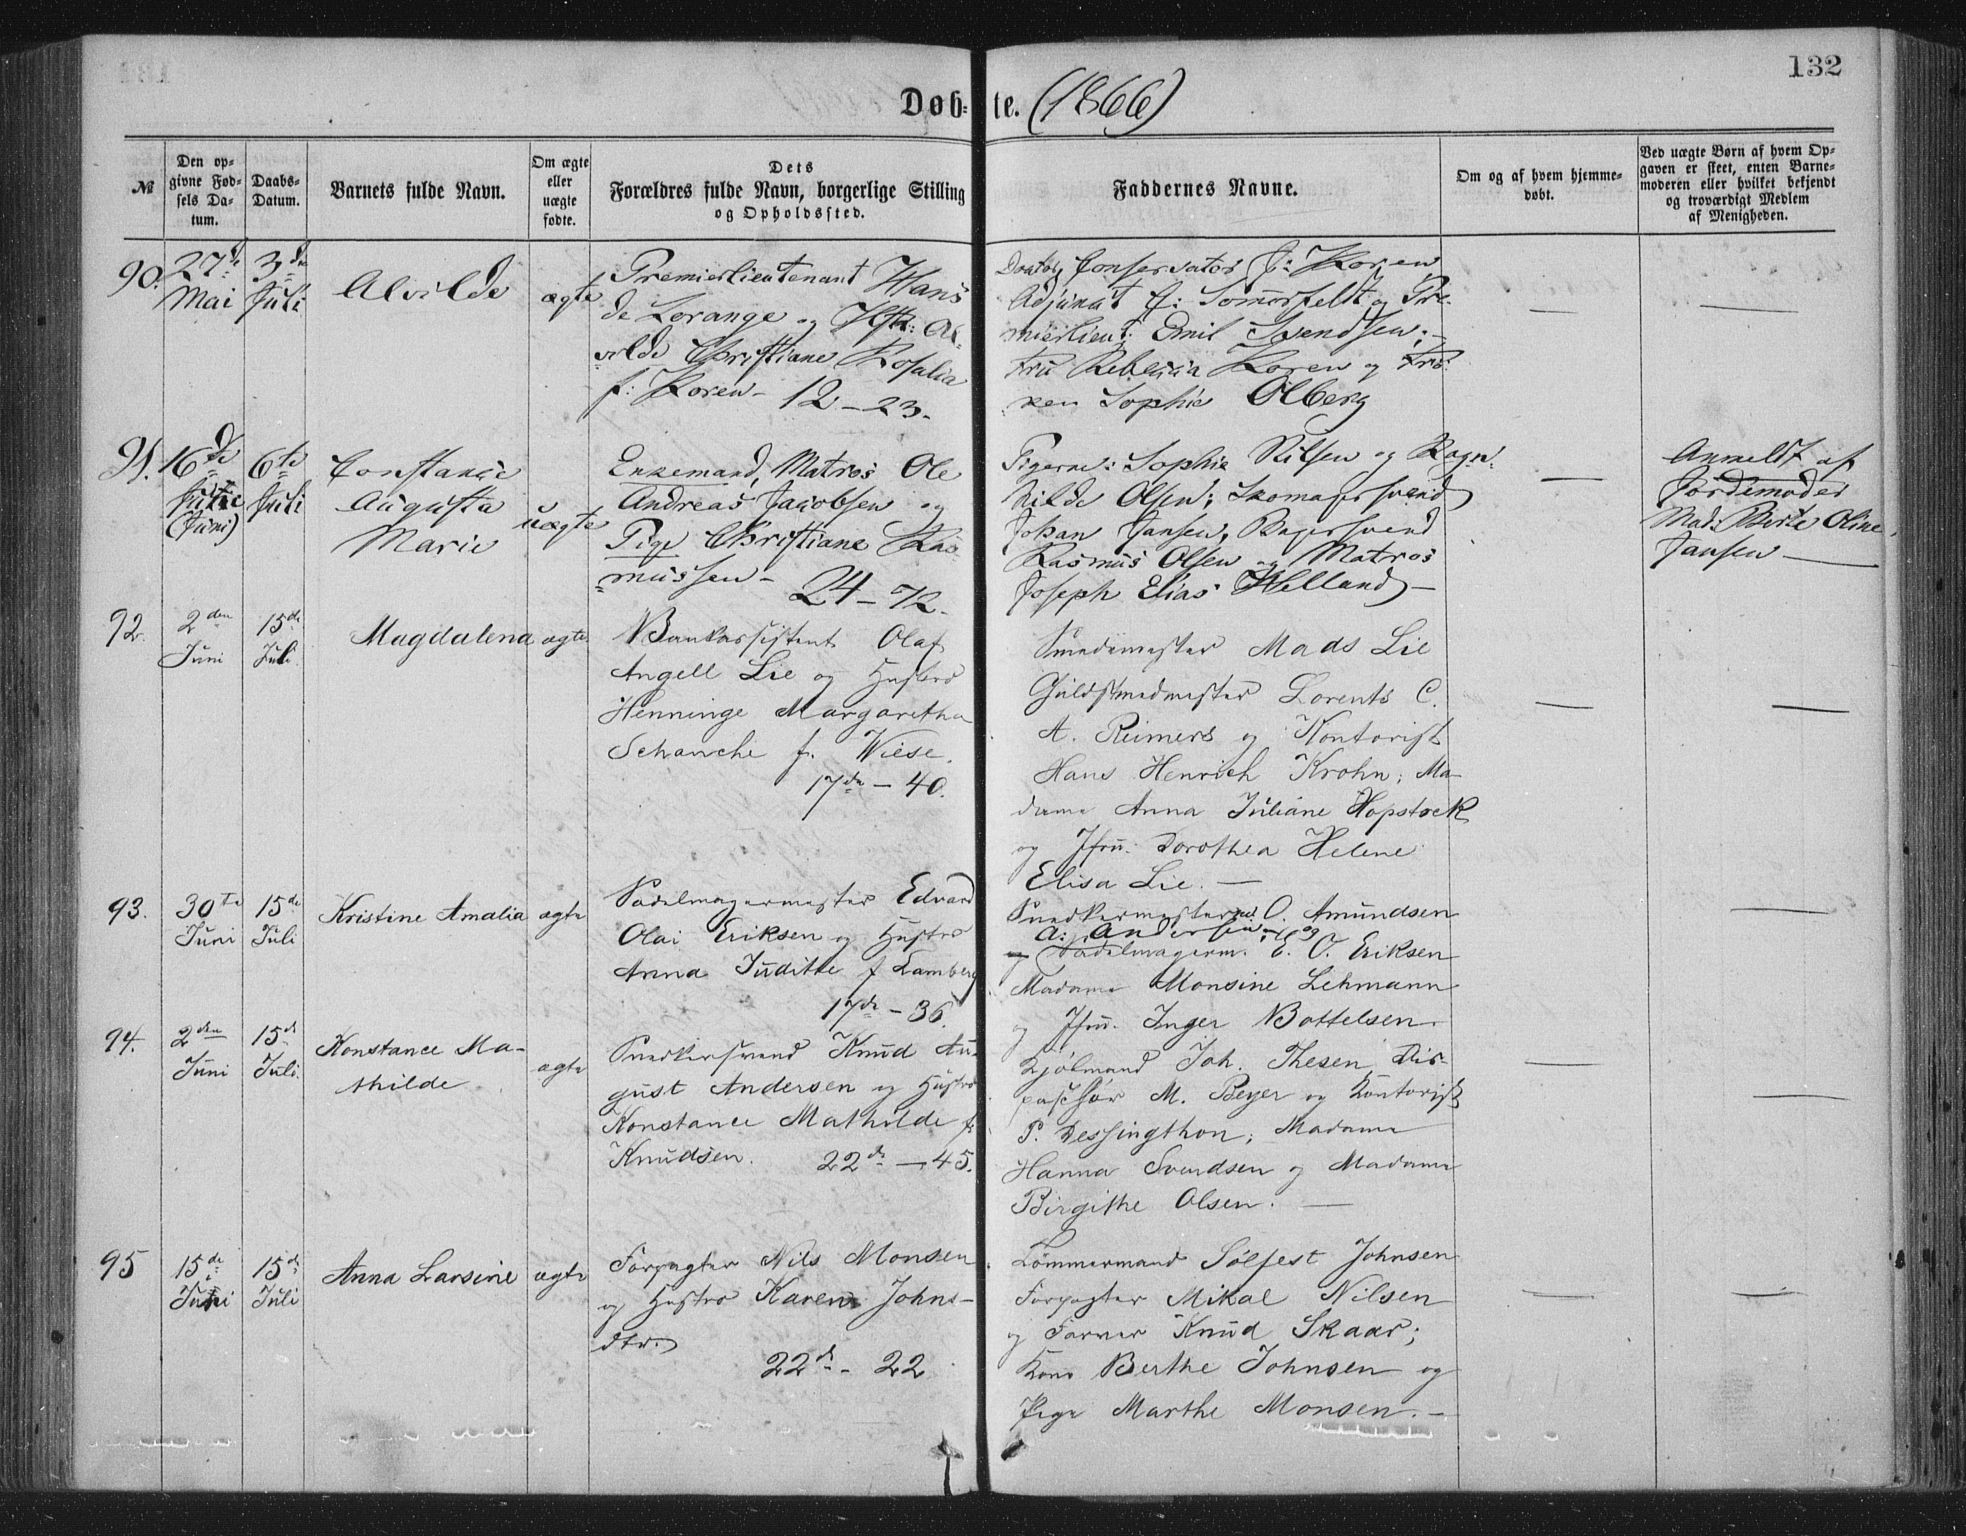 132
Døb-te. (1866)
№
Den op-
givne Fød-
sels Da-
tum.
Daabs-
Datum.
Barnets fulde Navn.
Om ægte
eller
uægte
fødte.
Dets
Forældres fulde Navn, borgerlige Stilling
og Opholdssted.
Faddernes Navne.
Om og af hvem hjemme-
døbt.
Ved uægte Børn af hvem Op-
gaven er skeet, enten Barne-
moderen eller hvilket bekjendt
og troværdigt Medlem
af Menigheden.
90.
27de
Mai
3die
Juli
Alvilde
ægte
Premierlieutenant Hans
de Lorange og Hstr: Al-
vilde Christiane Rosalia
f: Koren - 12 - 23.
Conservator J: Koren
Adjunct C: Sommerfeldt og Pre-
mierlieut: Emil Svendsen; -
Fru Rebecca Koren og Frø-
ken Sophie Olberg
91.
16de
(Juni)
6te
Juli
Constance
Augusta
Marie
uægte
Enkemand, Matros Ole
Andreas Jacobsen og
Pige Christiane Ras-
mussen - 24 - 72.
Pigerne: Sophie Nilsen og Ragn-
hilde Olsen; Skomagersvend
Johan Jansen, Bagersvend
Rasmus Olsen og Matros
Joseph Elias Helland -
Anmeldt af
Jordemoder
Mad: Berte Oline
Jansen
92.
2den
Juni
15de
Juli.
Magdalena
ægte
Bankassistent Olaf
Angell Lie og Hustro
Henninge Margaretha
Schanche f. Wiese.
17de - 40.
Smedemester Mads Lie
Guldsmedmester Lorents C.
A. Reimers og Kontorist
Hans Henrich Krohn; Ma-
dame Anna Juliane Hopstock
og Jfru. Dorothea Helene
Elisa Lie. -
93.
30te
Juni
15de
Juli
Kristine Amalia
ægte
Sadelmagermester Edvard
Olai Eriksen og Hustro
Anna Juditte f Lamberg
17de - 36.
Snedkermester O. Amundsen
A: Andersen og
Sadelmagerm. E. O. Eriksen
Madame Monsine Lehmann
og Jfru. Inger Bottelsen.
94.
2den
Juni
15de
Juli.
Konstance Ma-
thilde
ægte
Snedkersvend Knud Au-
gust Andersen og Hustro
Konstance Mathilde f.
Knudsen. 22de - 45.
Kjølmand Joh. Thesen, Dis-
paschør M. Beyer og Kontorist
P. Dessingthon; Madame
Hanna Svendsen og Madame
Birgithe Olsen. -
95
15de
Juni
15de
Juli
Anna Larsine
ægte
Forpagter Nils Monsen
og Hustro Karen Johns-
dtr.
22de - 22
Tømmermand Sølfest Johnsen
Forpagter Mikal Nilsen
og Farver Knud Skaar;
Kone Berthe Johnsen og
Pige Marthe Monsen. -